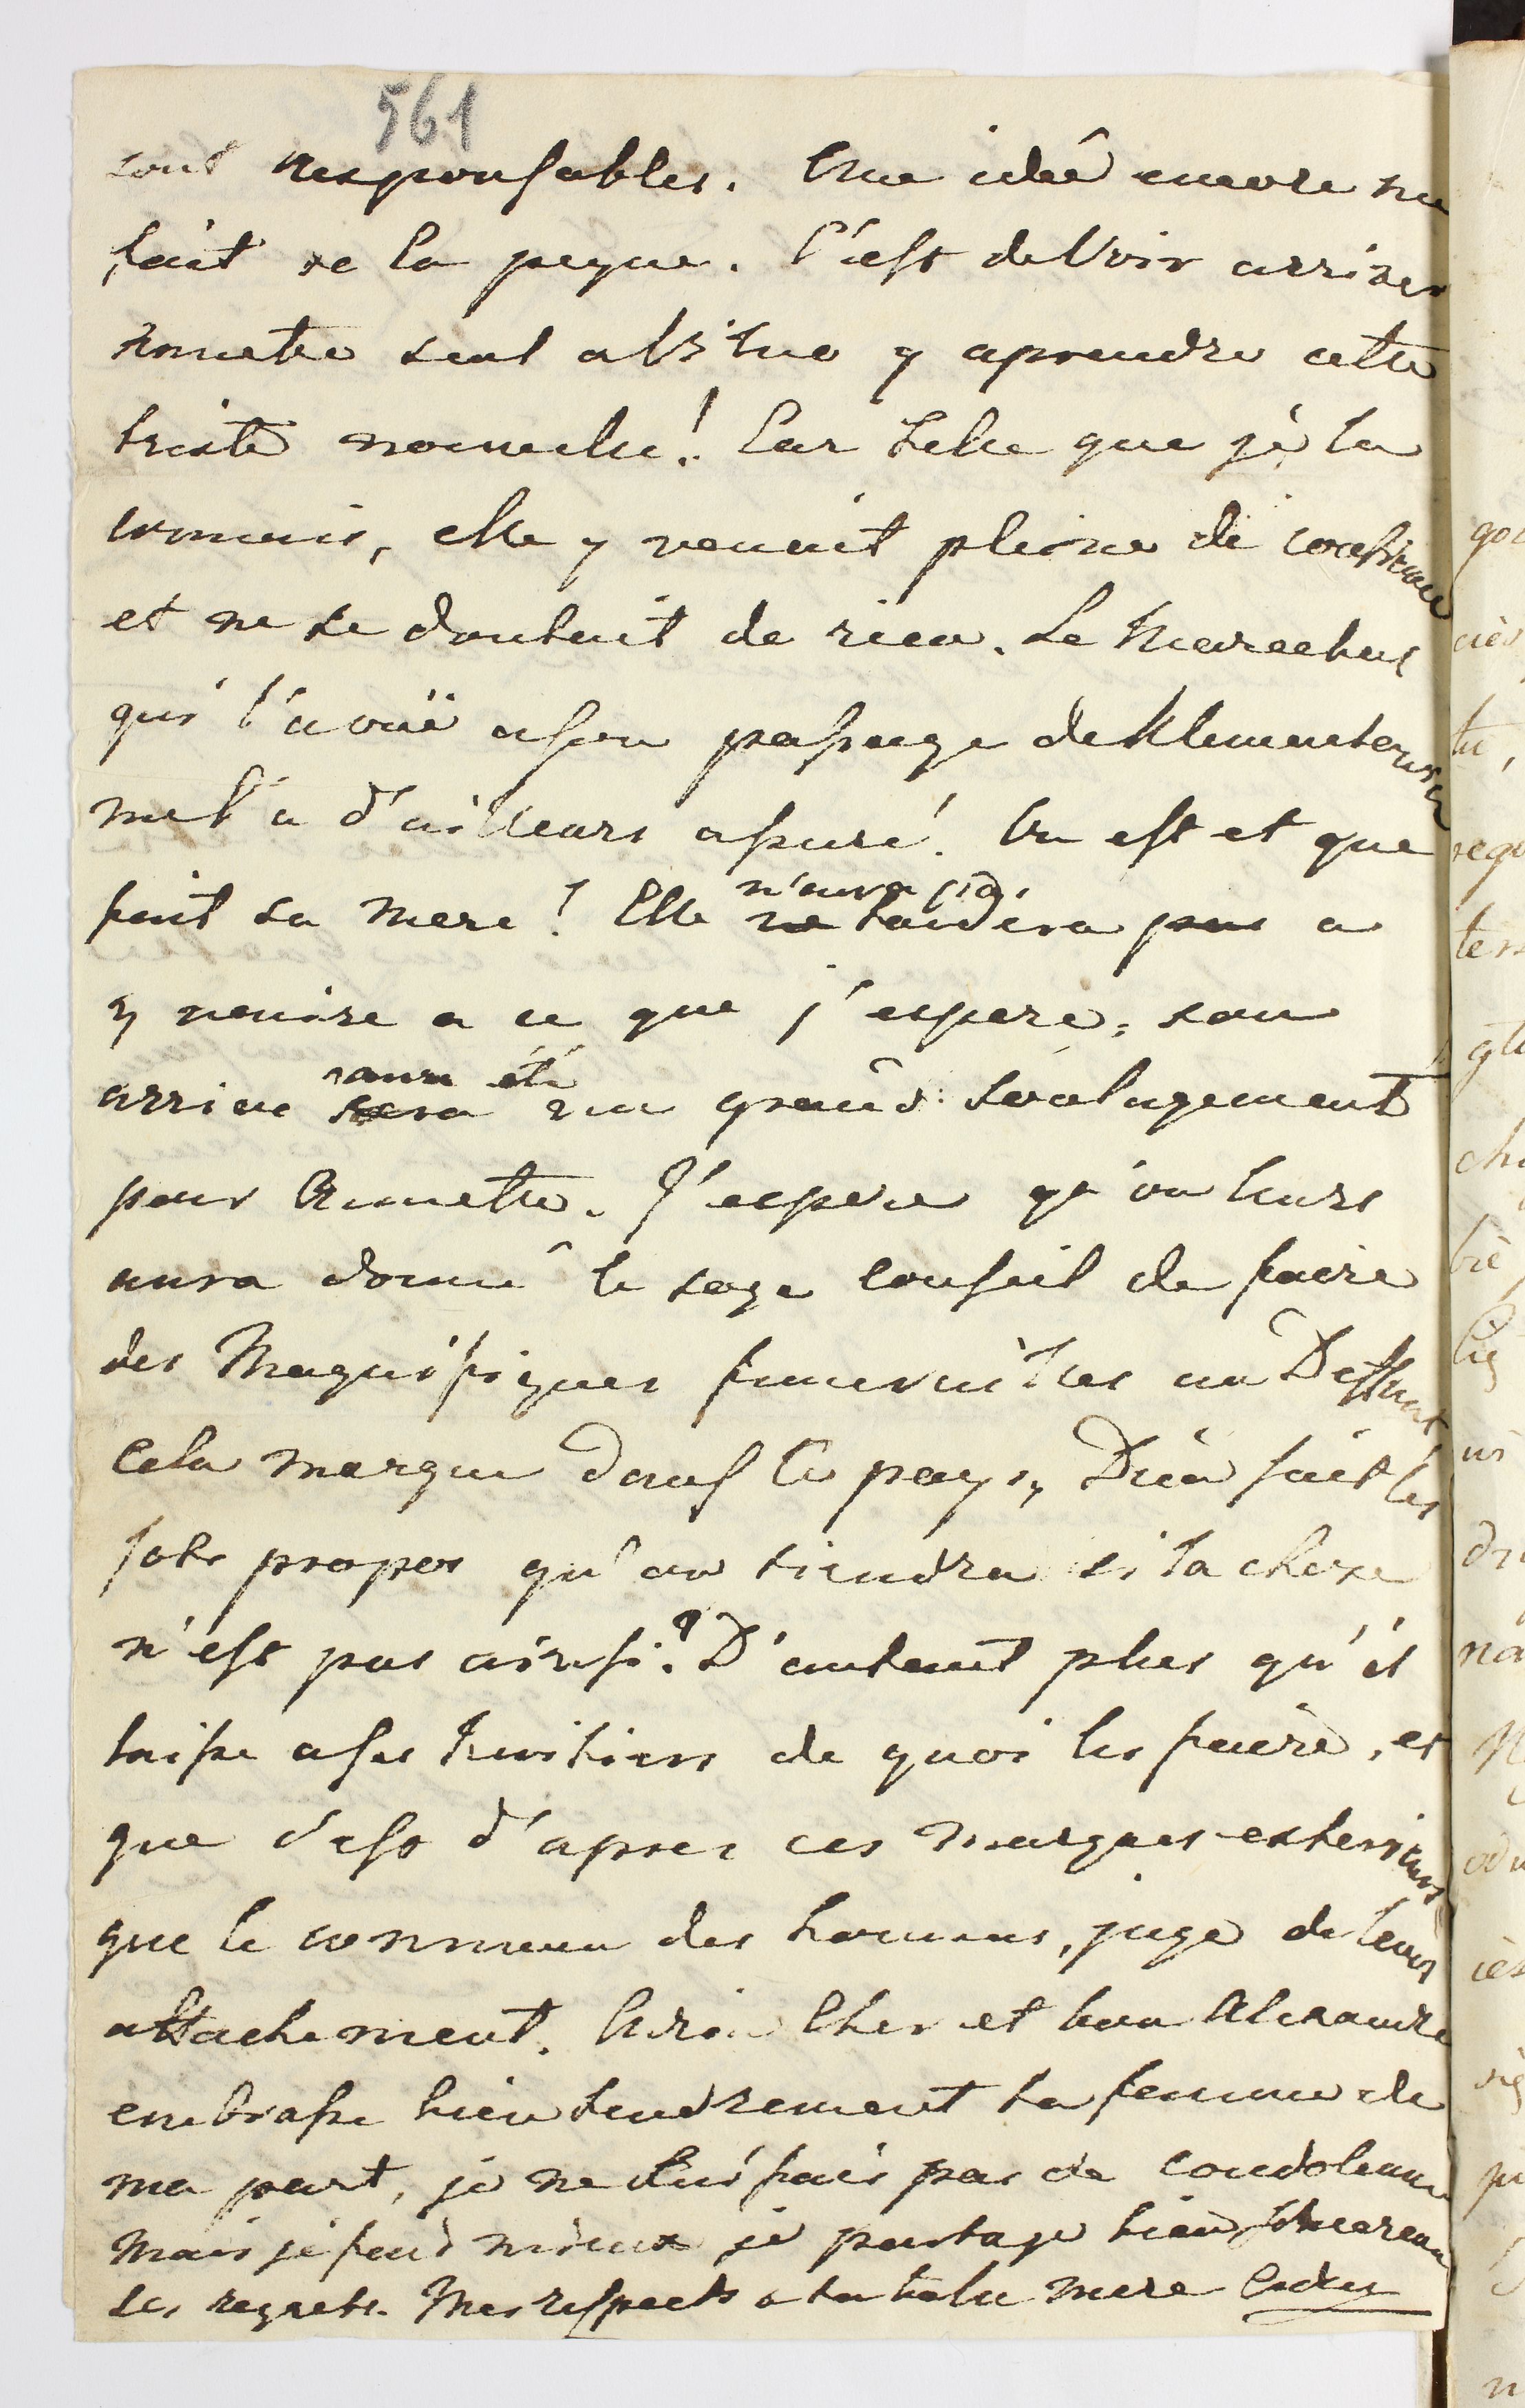 561
sont responsables. Une idée encore me
fait de la peyne. C'est de Voir arriver
Annette seul a
y aprendre cette
triste nouvelle! Car telle que je la
connais, elle y venait pleine de confiance
et ne se doutait de rien. Le Marechal
qui l'a vuë a son passage de
me l'a d'ailleurs assuré. Ou est et que
fait sa Mere? Elle ne tardera pas a
n'aura
y venire a ce que j'espere, son
arrivé sera un grand soulagement
aura été
pour Annette. J'espere qu'on leurs
aura donné le sage conseil de faire
des Magnifiques funerailles au Deffunt
Cela marque dans le pays, Dieu sait les
sots propos qu'on tiendra si la chose
n'est pas ainsi? D'autant plus qu'il
laisse a ses heritiers de quoi les faire, et
que c'est d'apres ces marques exterieures
que le commun des hommes, juge de leurs
attachement. Adieu Cher et bon Alexandre
embrasse bien tendrement ta femme de
ma part, je ne lui fais pas de condoleance
Mais je fend mieux je partage bien
ses regrets. Mes respects a ta belle mere